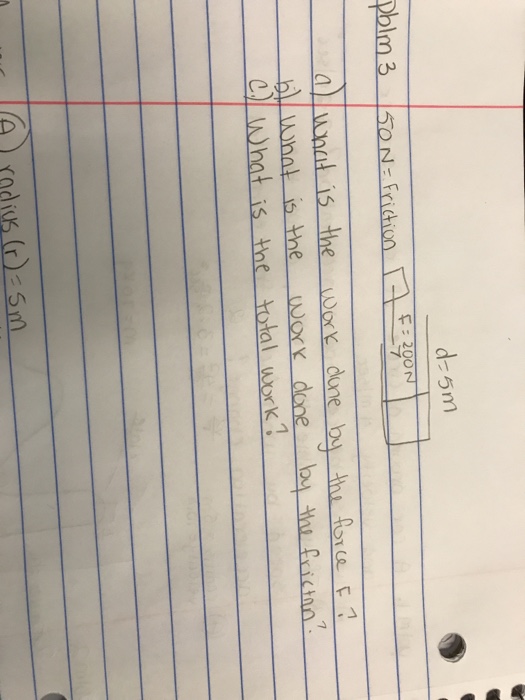 d=5m
F=200N
pblm 3 50N = Friction
a) What is the work done by the force F?
b) What is the work done by the friction?
c.) What is the total work?
A radius (r) = 5m